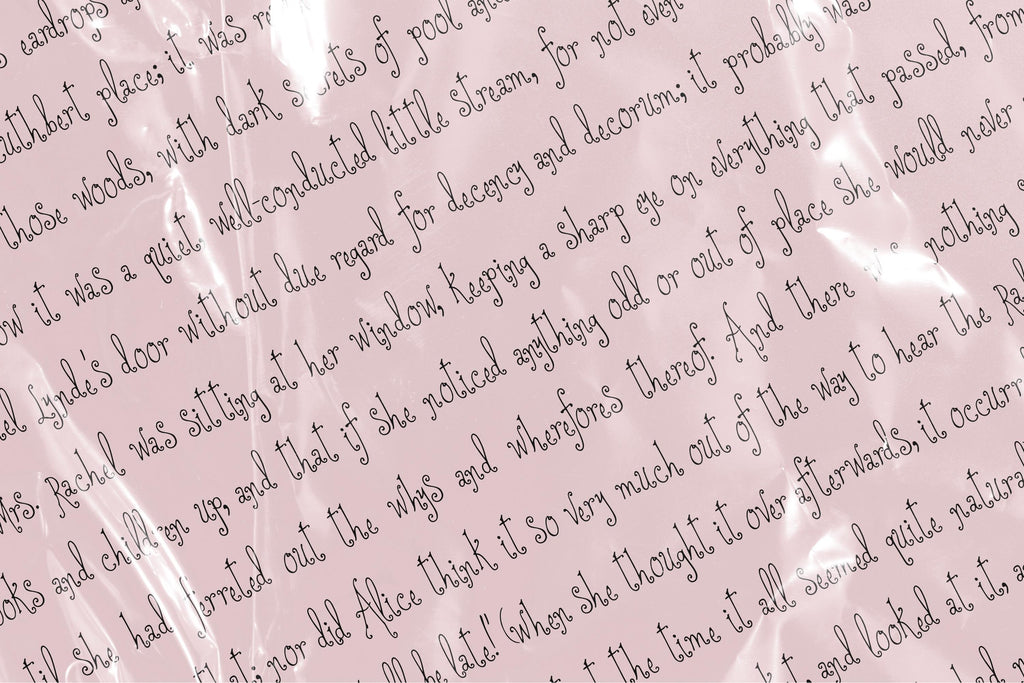 s eardrops
Cuthbert place; it was
those woods, with dark secrets of pool and
ow it was a quiet, well-conducted little stream, for not even
hel Lynde's door without due regard for decency and decorum; it probably was
Mrs. Rachel was sitting at her window, keeping a sharp eye on everything that passed, from
ooks and children up, and that if she noticed anything odd or out of place she would never
til she had ferreted out the whys and wherefores thereof. And there was nothing
that; nor did Alice think it so very much out of the way to hear the Ra
ll be late!" (when she thought it over afterwards, it occurr
t the time it all seemed quite natural
and looked at it,
had